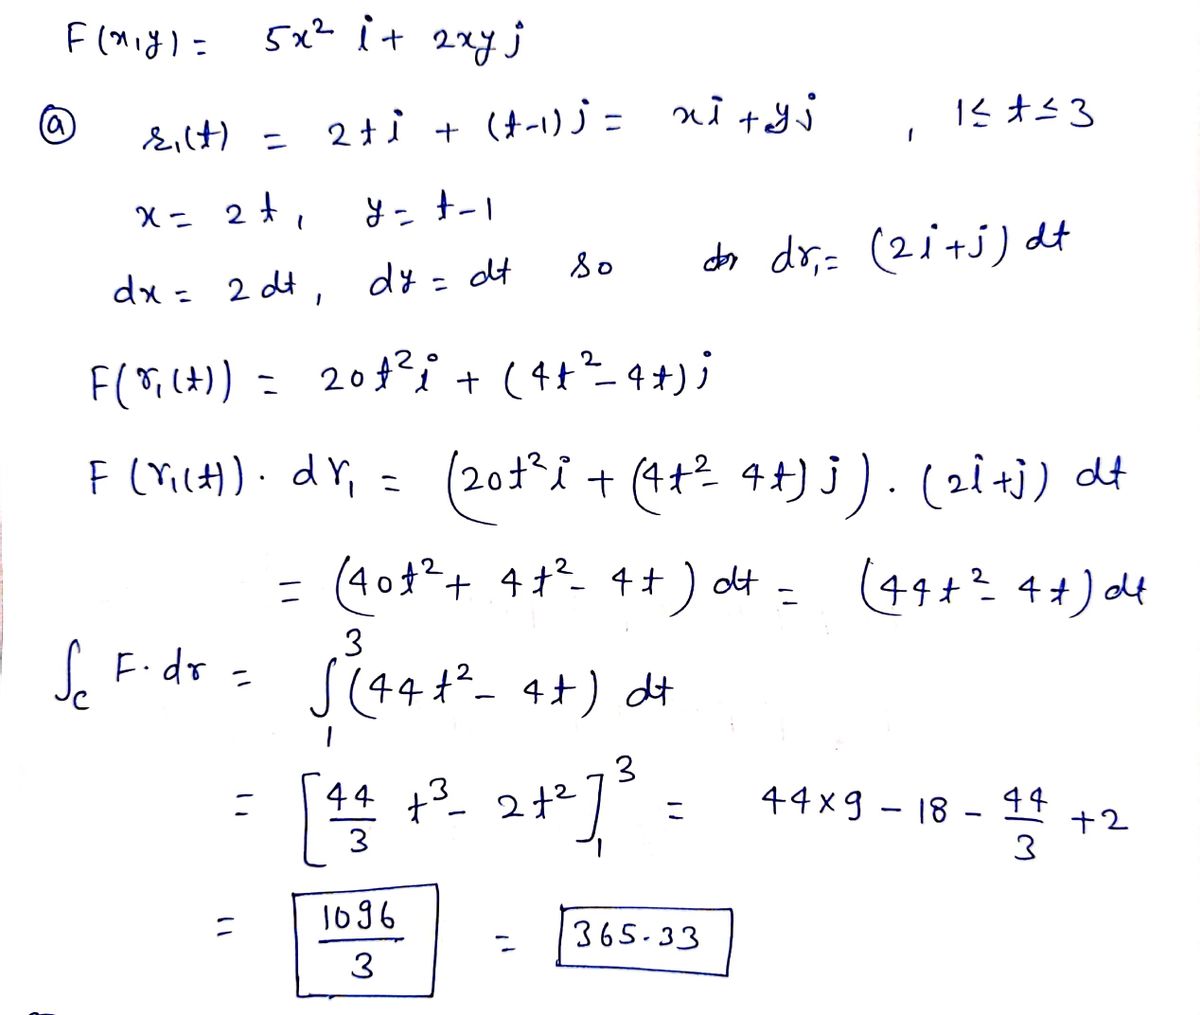 F(x,y) = 5x² i + 2xy j
ⓐ r₁(t) = 2t i + (t-1) j = xi + yj , 1 ≤ t ≤ 3
x = 2t, y = t-1
dx = 2dt, dy = dt so dr₁ = (2i+j) dt
F(r₁(t)) = 20t² i + (4t² - 4t) j
F(r₁(t)). dr₁ = (20t² i + (4t² - 4t) j) . (2i+j) dt
= (40t² + 4t² - 4t) dt = (44t² - 4t) dt
∫_C F.dr = ∫₁³ (44t² - 4t) dt
= [44/3 t³ - 2t²]₁³ = 44×9 - 18 - 44/3 + 2
= 1096/3 = 365.33